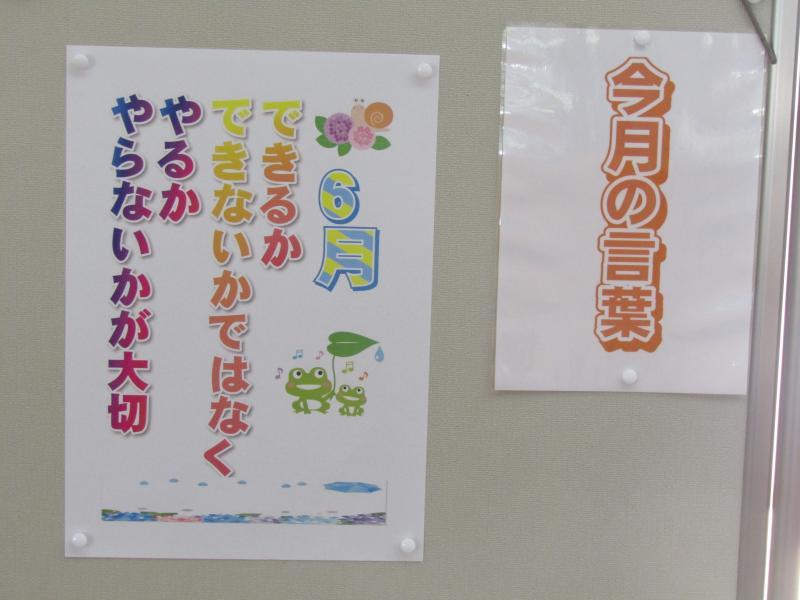 今月の言葉
6月
できるか
できないかではなく
やるか
やらないかが大切